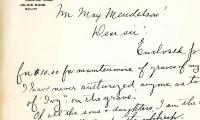 Mr May Mendelson!
Dear sir;
Enclosed f
for $10.00 for maintenance of graves of my
I have never authorized, anyone as to
of "Ivy" on the grave.
of all the sons & daughters, I am the